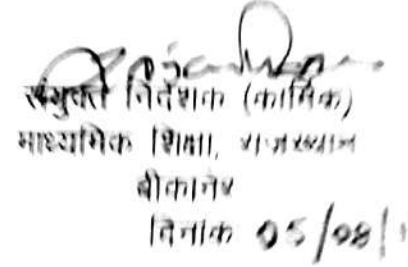 संयुक्त निदेशक (कार्मिक)
माध्यमिक शिक्षा, राजस्थान
बीकानेर
दिनांक 05/08/